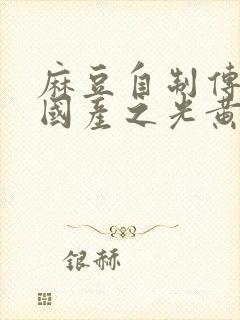 麻豆自制傳
國產之光黃
銀赫